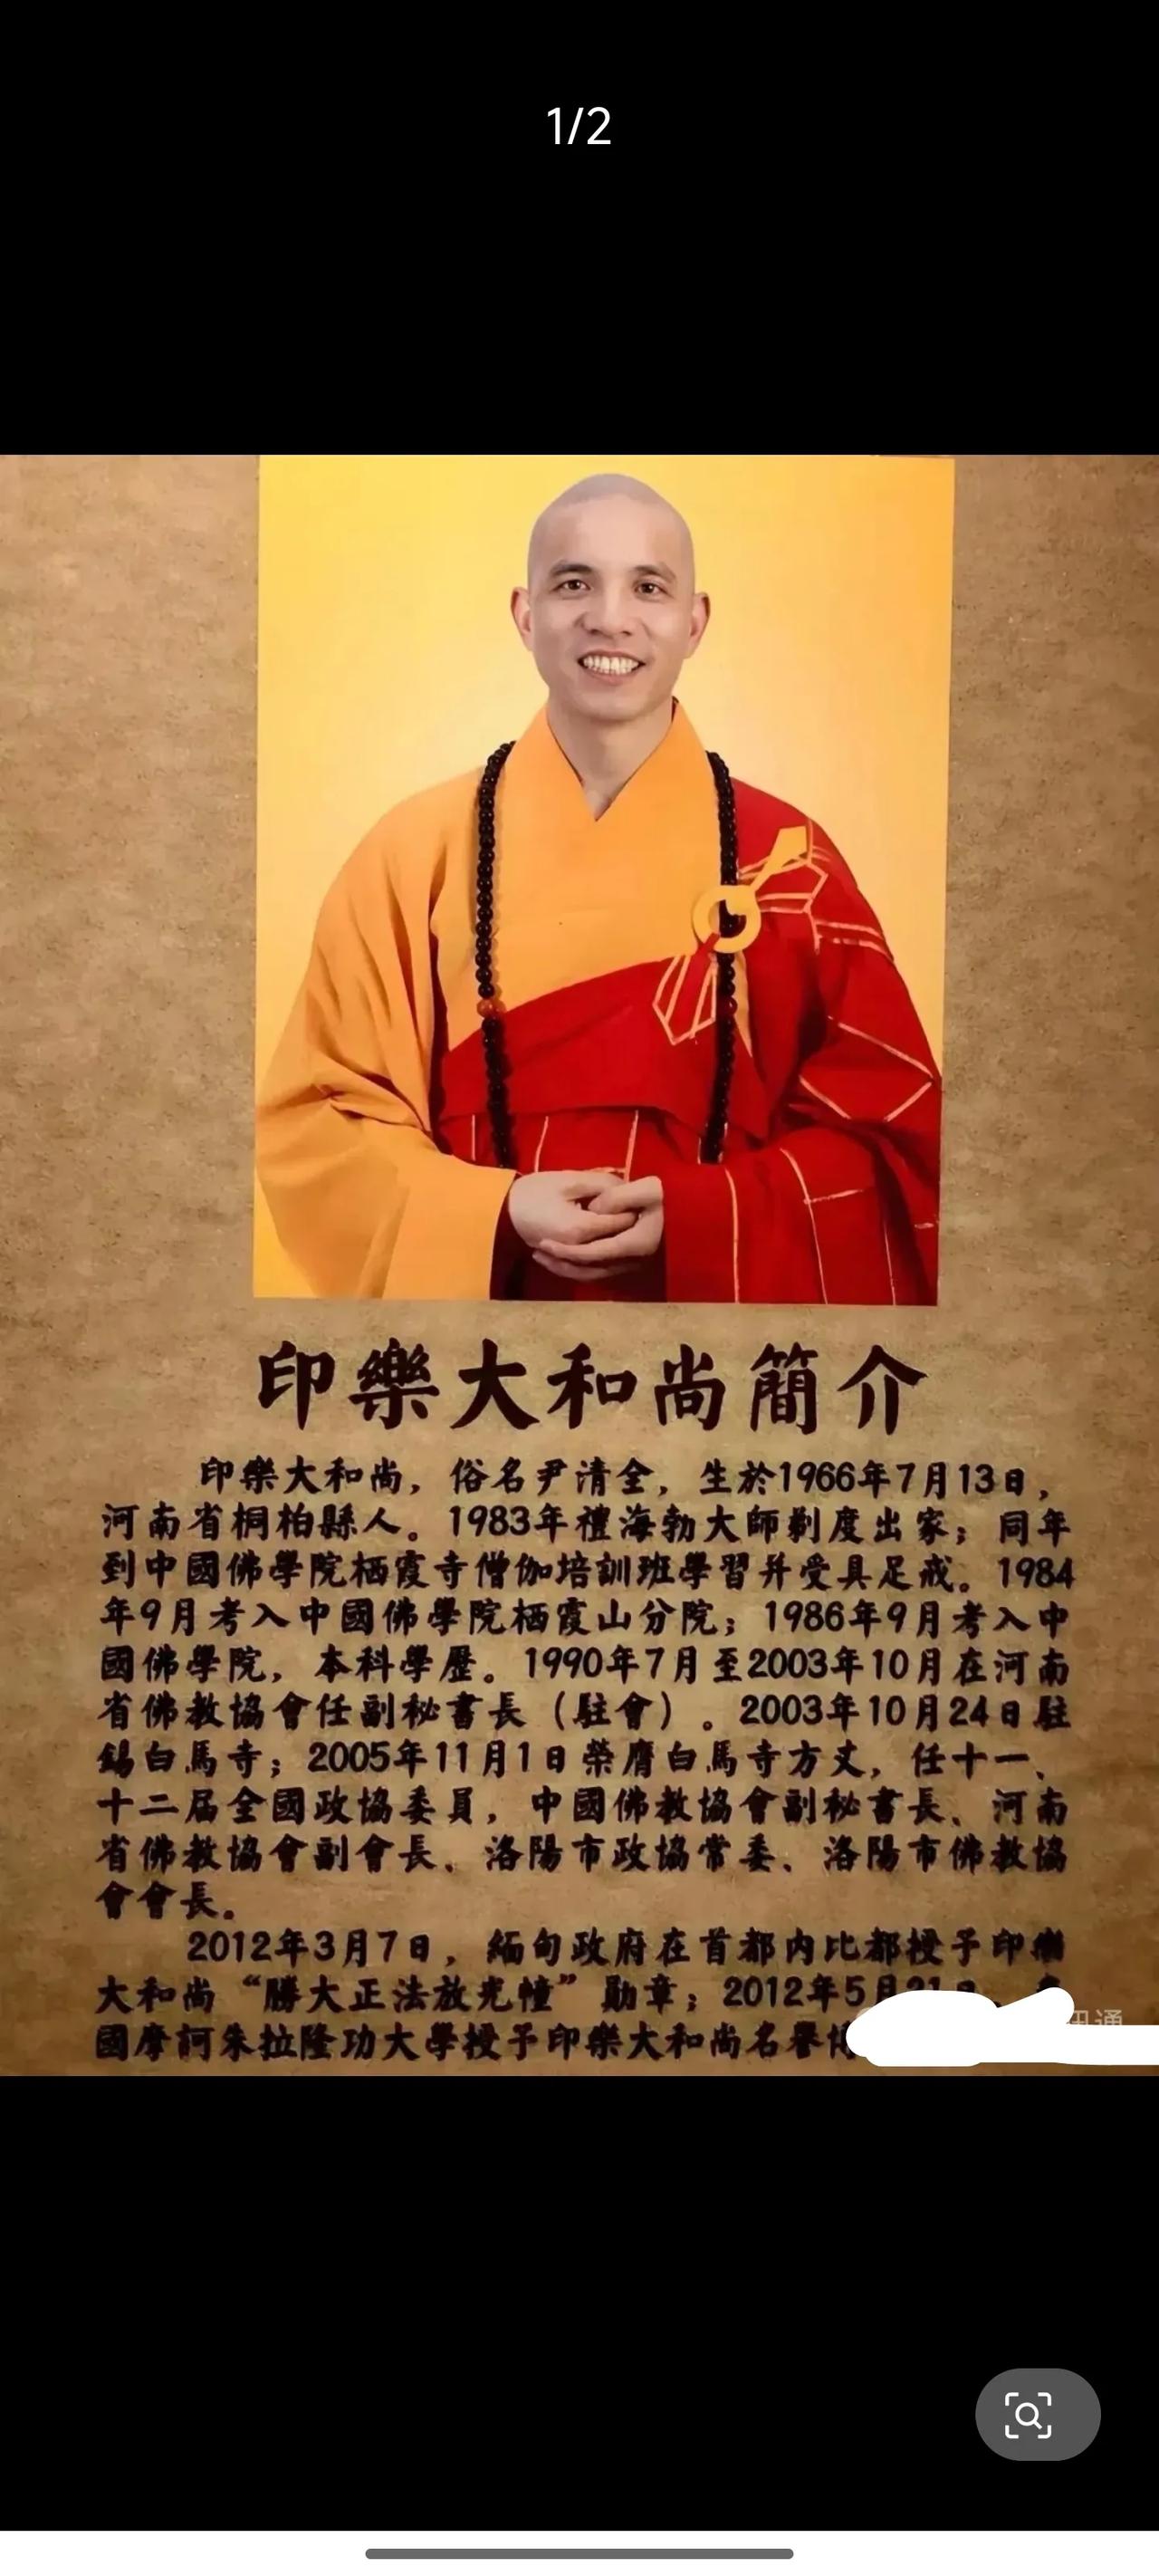 1/2
印樂大和尚簡介
印樂大和尚，俗名尹清全，生於1966年7月13日，
河南省桐柏縣人。1983年禮海勃大師剃度出家；同年
到中國佛學院栖霞寺僧伽培訓班學習并受具足戒。1984
年9月考入中國佛學院栖霞山分院；1986年9月考入中
國佛學院，本科學歷。1990年7月至2003年10月在河南
省佛教協會任副秘書長（駐會）。2003年10月24日駐
錫白馬寺；2005年11月1日榮膺白馬寺方丈，任十一、
十二届全國政協委員，中國佛教協會副秘書長、河南
省佛教協會副會長、洛陽市政協常委、洛陽市佛教協
會會長。
2012年3月7日，緬甸政府在首都内比都授予印樂
大和尚“勝大正法放光幢”勛章；2012年5月21日、
國摩訶朱拉隆功大學授予印樂大和尚名譽
訊通